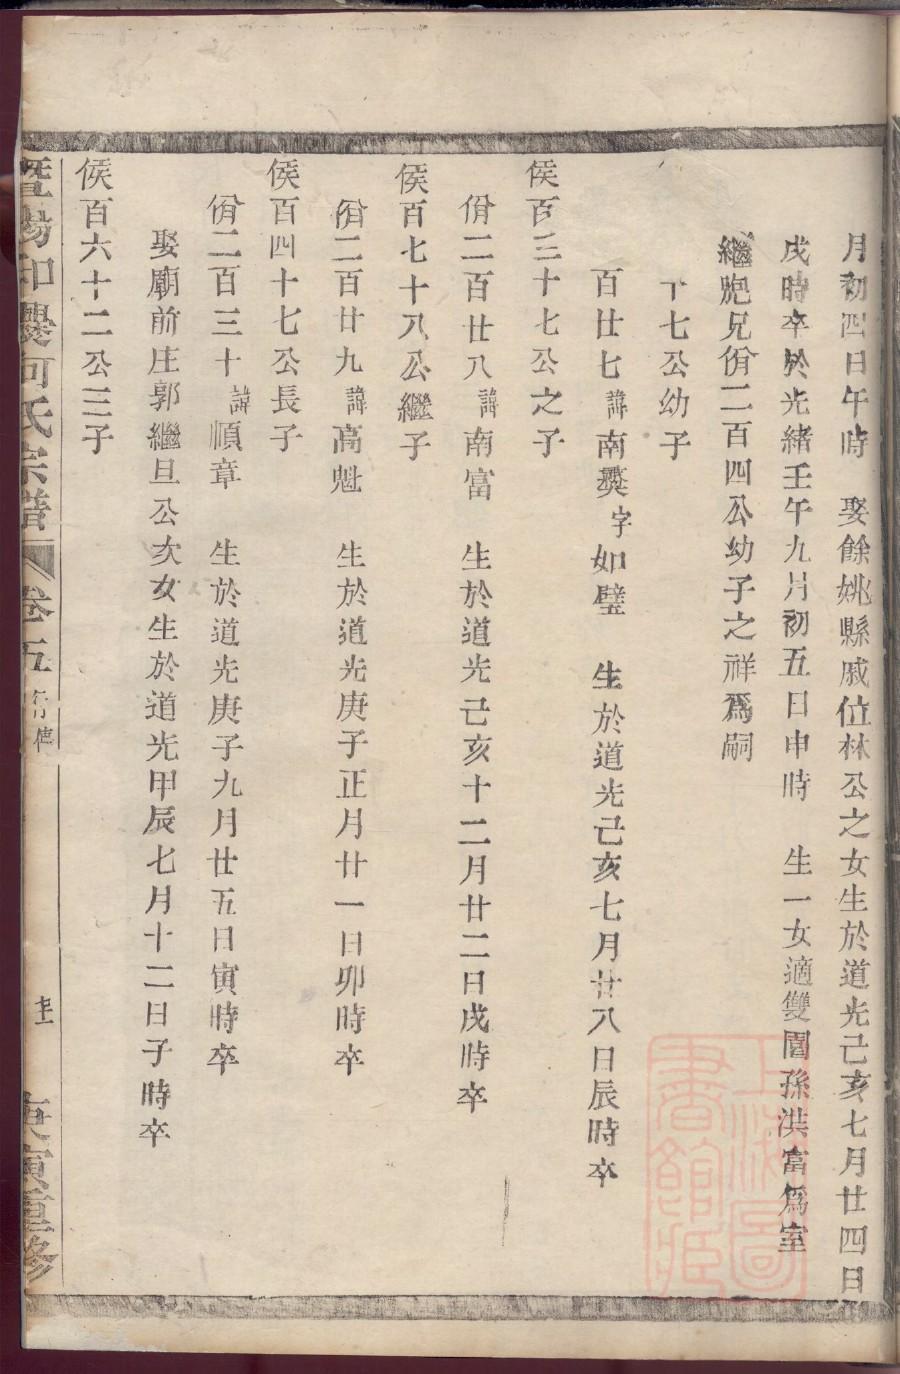 月初四日午時　娶餘姚縣戚位林公之女生於道光己亥七月廿四日
戌時卒於光緒壬午九月初五日申時　生一女適雙園孫洪富爲室
繼胞兄佾二百四公幼子之祥爲嗣
十七公幼子
百廿七諱南奬字如璧　生於道光己亥七月廿八日辰時卒
侯百三十七公之子
佾二百廿八諱南富　生於道光己亥十二月廿二日戌時卒
侯百七十八公繼子
佾二百廿九諱高魁　生於道光庚子正月廿一日卯時卒
侯百四十七公長子
佾二百三十諱順章　生於道光庚子九月廿五日寅時卒
娶廟前庄郭繼旦公次女生於道光甲辰七月十二日子時卒
侯百六十二公三子
暨陽　何氏宗譜　卷五　庚寅重修
上海圖書館藏